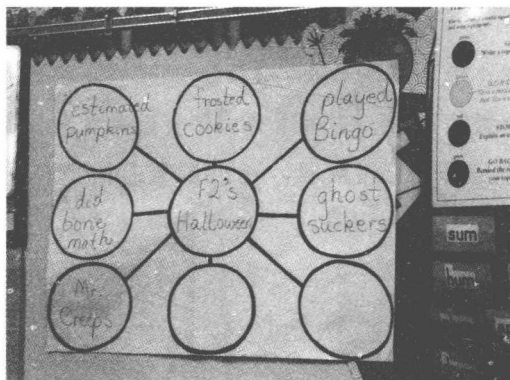 estimated
pumpkins
frosted
cookies
played
Bingo
did
bone
math
F2's
Halloween
ghost
suckers
Mr.
Creeps
GO BACK
sum
hum